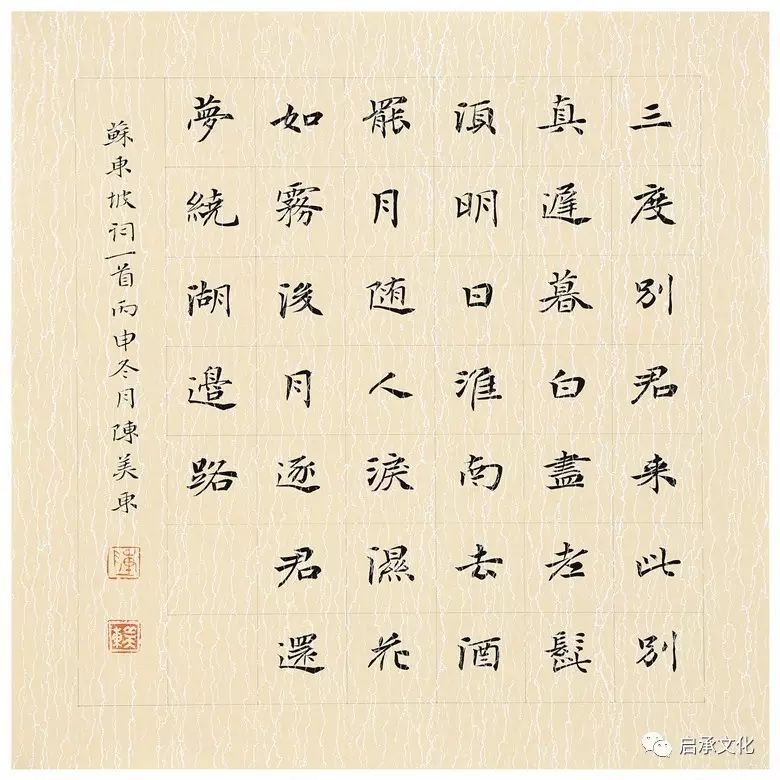 三度別君来此別
真遲暮白盡老髭
湏明日淮南去酒
罷月随人淚濕花
如霧後月逐君還
夢繞湖邊路
蘇東坡詞一首丙申冬月陳美東
陳
启承文化